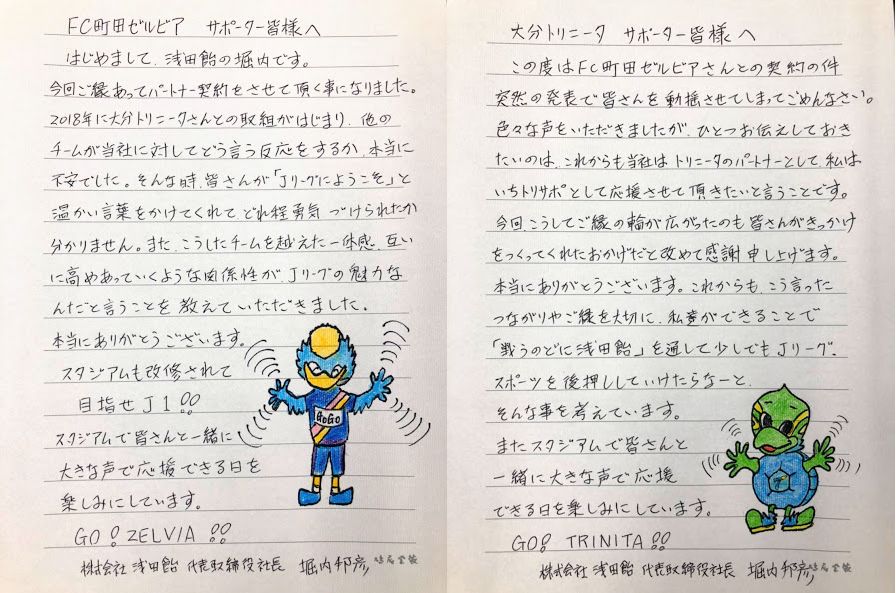 FC町田ゼルビア サポーター皆様へ
はじめまして、浅田飴の堀内です。
今回ご縁あってパートナー契約をさせて頂く事になりました。
2018年に大分トリニータさんとの取組がはじまり、他の
チームが当社に対してどう言う反応をするか、本当に
不安でした。そんな時、皆さんが「Jリーグにようこそ」と
温かい言葉をかけてくれて どれ程勇気づけられたか
分かりません。また、こうしたチームを越えた一体感、互い
に高めあっていくような関係性が、Jリーグの魅力な
んだと言うことを教えていただきました。
本当にありがとうございます。
スタジアムも改修されて
目指せJ1!!
スタジアムで皆さんと一緒に
大きな声で応援できる日を
楽しみにしています。
GO! ZELVIA!!
株式会社 浅田飴 代表取締役社長 堀内邦彦
GoGo
大分トリニータ サポーター皆様へ
この度はFC町田ゼルビアさんとの契約の件
突然の発表で皆さんを動揺させてしまってごめんなさい。
色々な声をいただきましたが、ひとつお伝えしておき
たいのは、これからも当社はトリニータのパートナーとして、私は
いちトリサポとして応援させて頂きたいと言うことです。
今回、こうしてご縁の輪が広がったのも皆さんがきっかけ
をつくってくれたおかげだと改めて感謝申し上げます。
本当にありがとうございます。これからも、こう言った
つながりやご縁を大切に、私達ができることで
「戦うのどに浅田飴」を通して少しでもJリーグ、
スポーツを後押ししていけたらなーと、
そんな事を考えています。
またスタジアムで皆さんと
一緒に大きな声で応援
できる日を楽しみにしています。
GO! TRINITA!!
株式会社 浅田飴 代表取締役社長 堀内邦彦